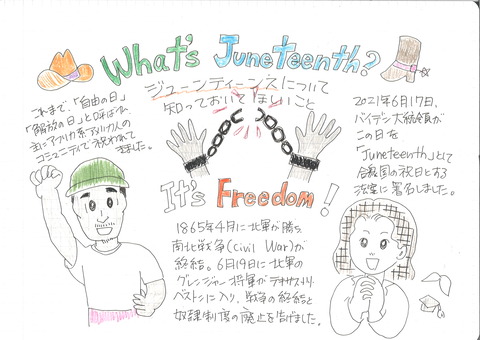 What's Juneteenth?
ジューンティーンスについて
知っておいてほしいこと
これまで、「自由の日」
「解放の日」と呼ばれ、
主にアフリカ系アメリカ人の
コミュニティで祝われて
きました。
2021年6月17日、
バイデン大統領が
この日を
「Juneteenth」として
合衆国の祝日とする
法案に署名しました。
It's Freedom!
1865年4月に北軍が勝ち
南北戦争(Civil War)が
終結。6月19日に北軍の
グレンジャー将軍がテキサス州ガル
ベストンに入り、戦争の終結と
奴隷制度の廃止を告げました。